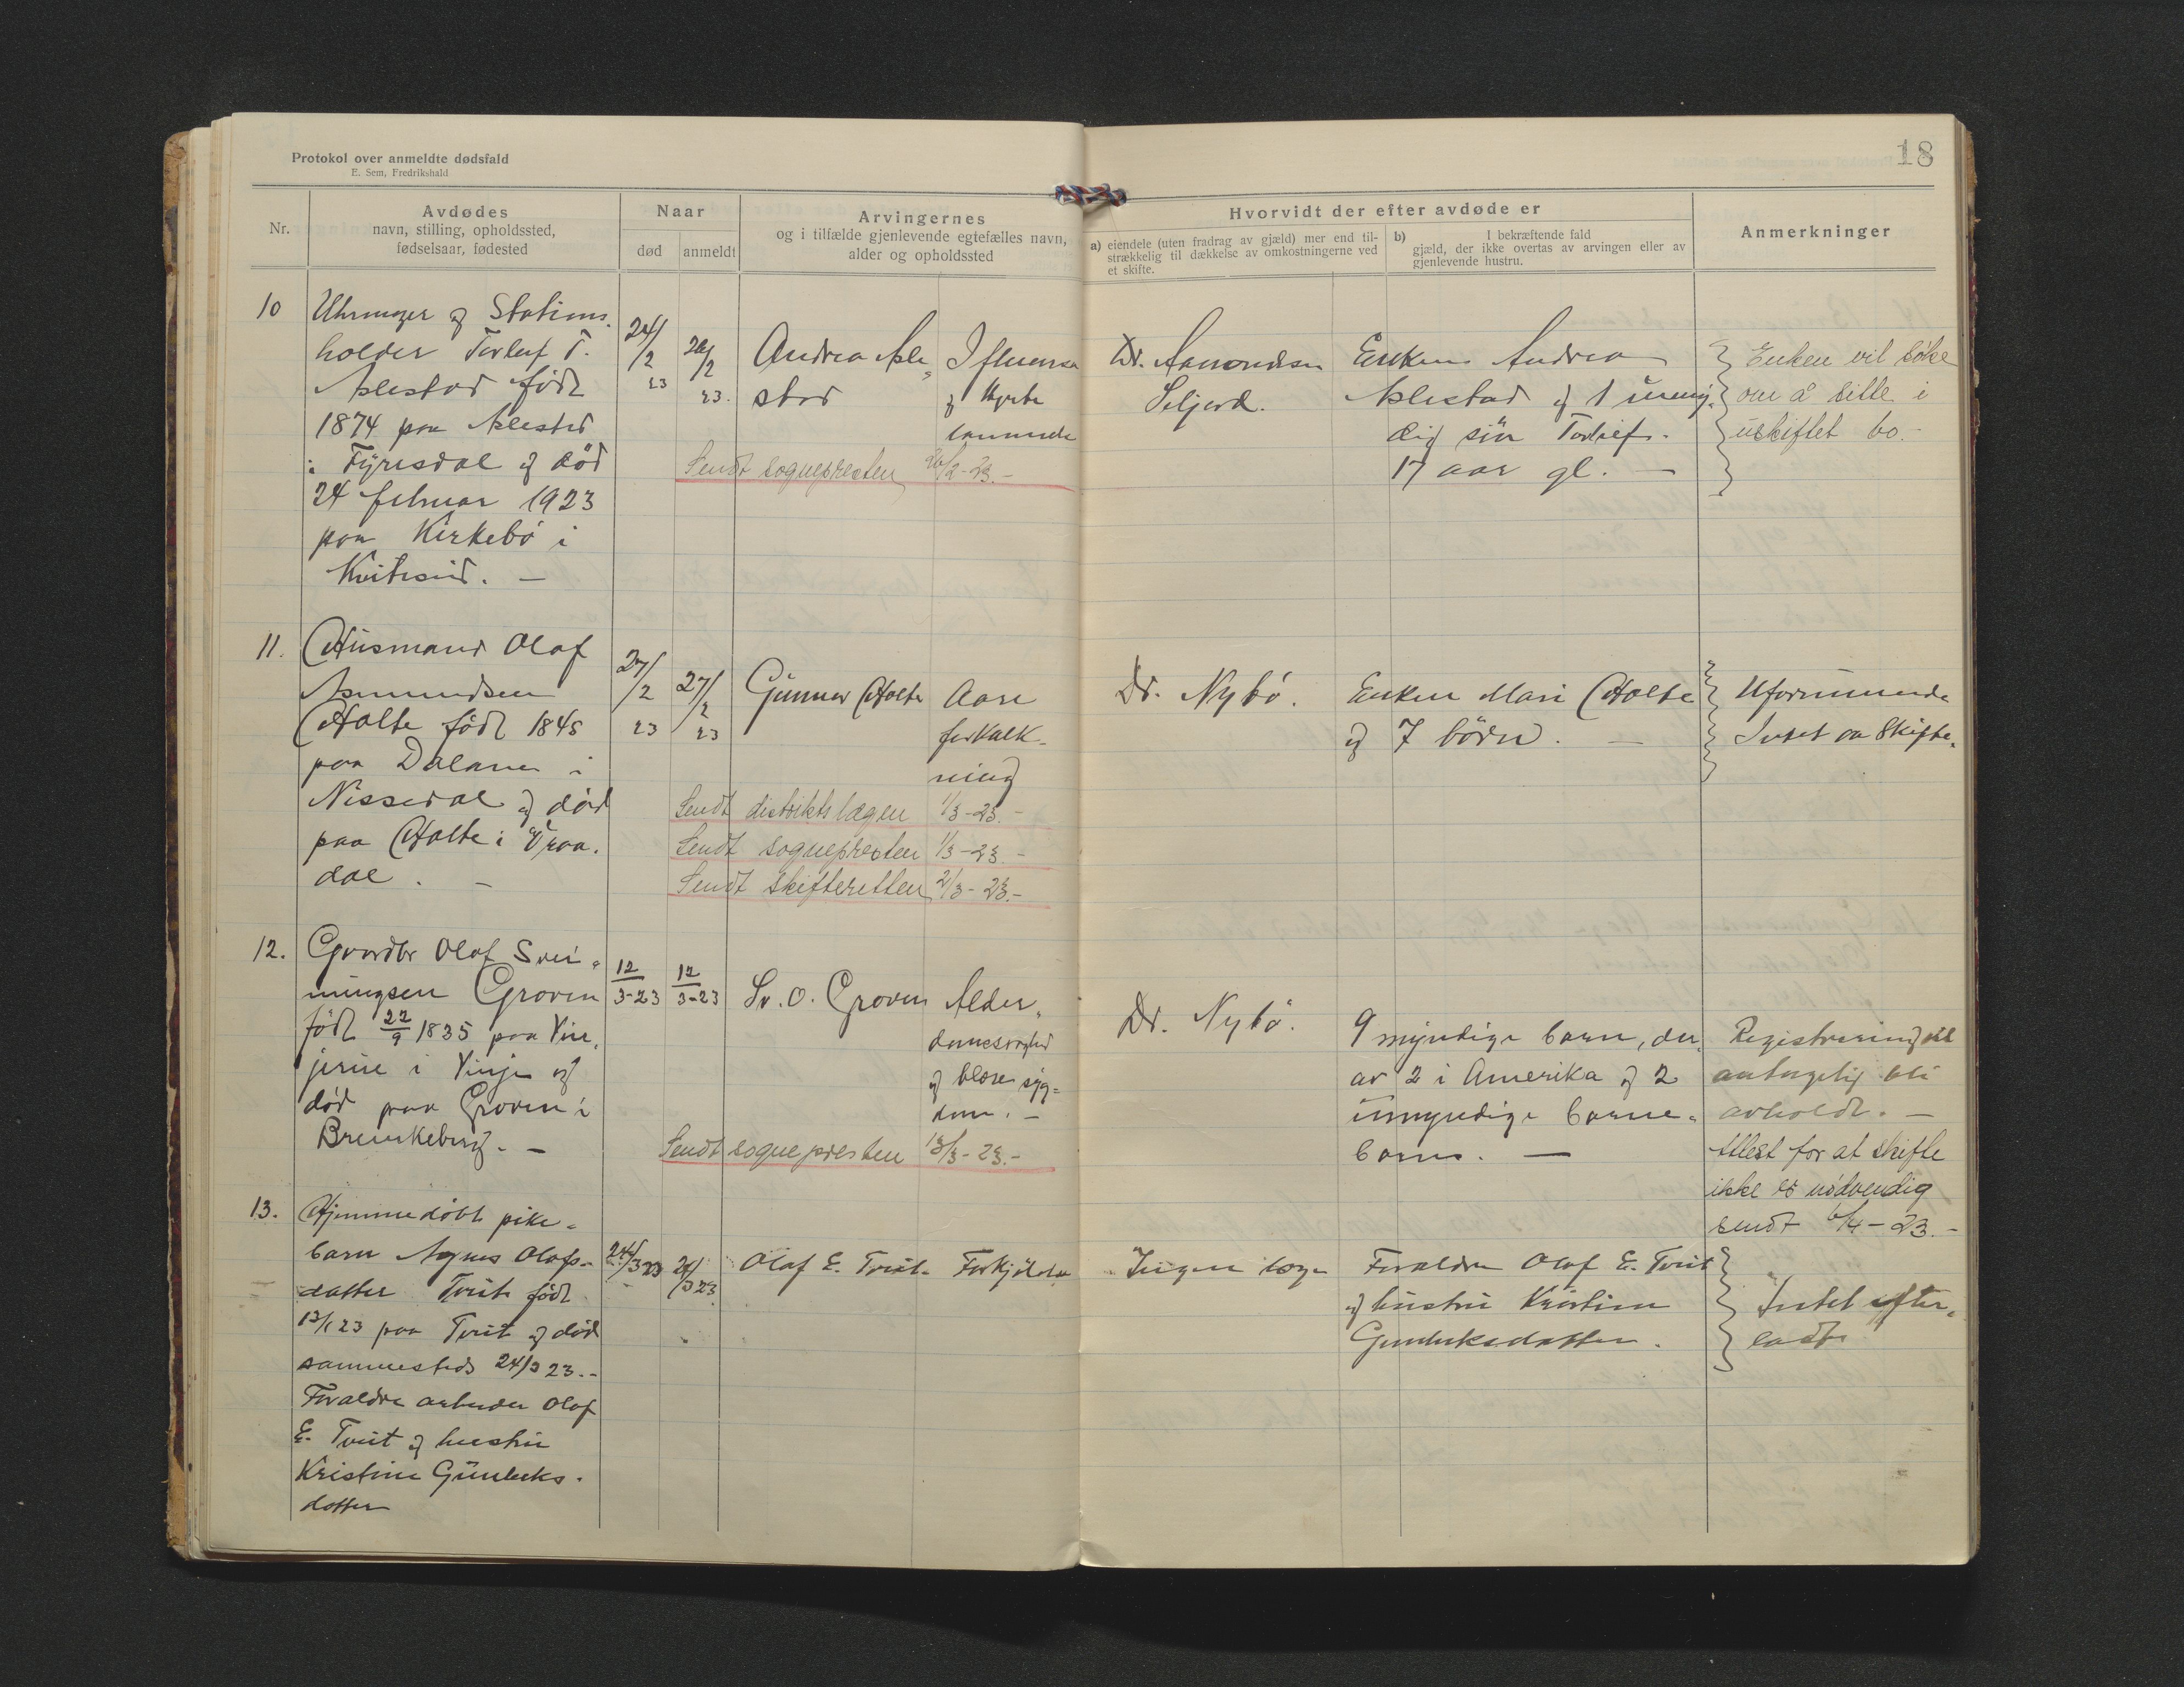 Protokol over anmeldte dødsfald
E. Sem, Fredrikshald
18
Nr.
Avdødes
navn, stilling, opholdssted,
fødselsaar, fødested
Naar
død
anmeldt
Arvingernes
og i tilfælde gjenlevende egtefælles navn,
alder og opholdssted
Hvorvidt der efter avdøde er
a) eiendele (uten fradrag av gjæld) mer end til-
strækkelig til dækkelse av omkostningerne ved
et skifte.
b) I bekræftende fald
gjæld, der ikke overtas av arvingen eller av
gjenlevende hustru.
Anmerkninger
10
Uhrmager og Stations-
holder T.
Aslestad född
1874 paa Aslestad
i Fyresdal og död
24 februar 1923
paa Kirkebö i
Kviteseid. -
24/2 23
26/2 23.
Andrea Asle-
stad
og Hjerte
lammelse
Sendt sognepresten 26/2-23.-
Dr. Aamundsen
Seljord.
Enken Andrea
Aslestad og 1 umyn-
dig sön
17 aar gl. -
Enken vil söke
om å sitte i
uskiftet bo.-
11.
Husmand Olaf
Asmundsen
Holte född 1845
paa Dalane i
Nissedal og död
paa Holte i Vraa-
dal. -
27/2 23
27/2 23
Gunnar Holte
Aare
forkalk-
ning
Sendt distriktslægen 1/3-23.-
Sendt sognepresten 1/3-23.-
Sendt skifteretten 2/3-23.-
Dr. Nybö.
Enken Mari Holte
og 7 börn. -
Uformuende
Intet aa Skifte.
12.
Gvardbr Olaf Svei-
nungsen Groven
född 22/9 1835 paa
i Vinje og
död paa Groven i
Brunkeberg. -
12/3-23
12/3-23
Sv. O. Groven
Alder-
domssvaghed
og blære syg-
dom. -
Sendt sognepresten 13/3-23.-
Dr. Nybö.
9 myndige barn, der-
av 2 i Amerika og 2
umyndige barne-
barn. -
Registrering vil
antagelig bli
avholdt. -
Attest for at skifte
ikke er nödvendig
sendt 6/4-23.-
13.
Hjemmedöbt pike-
barn Agnes Olafs-
datter Tveit född
13/1 23 paa Tveit og död
sammesteds 24/3 23.-
Foraldre arbeider Olaf
E. Tveit og hustru
Kristine Gunleks-
datter
24/3 23
26/3 23
Olaf E. Tveit.
Forkjölelse
Ingen læge
Foraldre Olaf E. Tveit
og hustru Kristine
Gunleksdatter.
Intet efter-
ladt